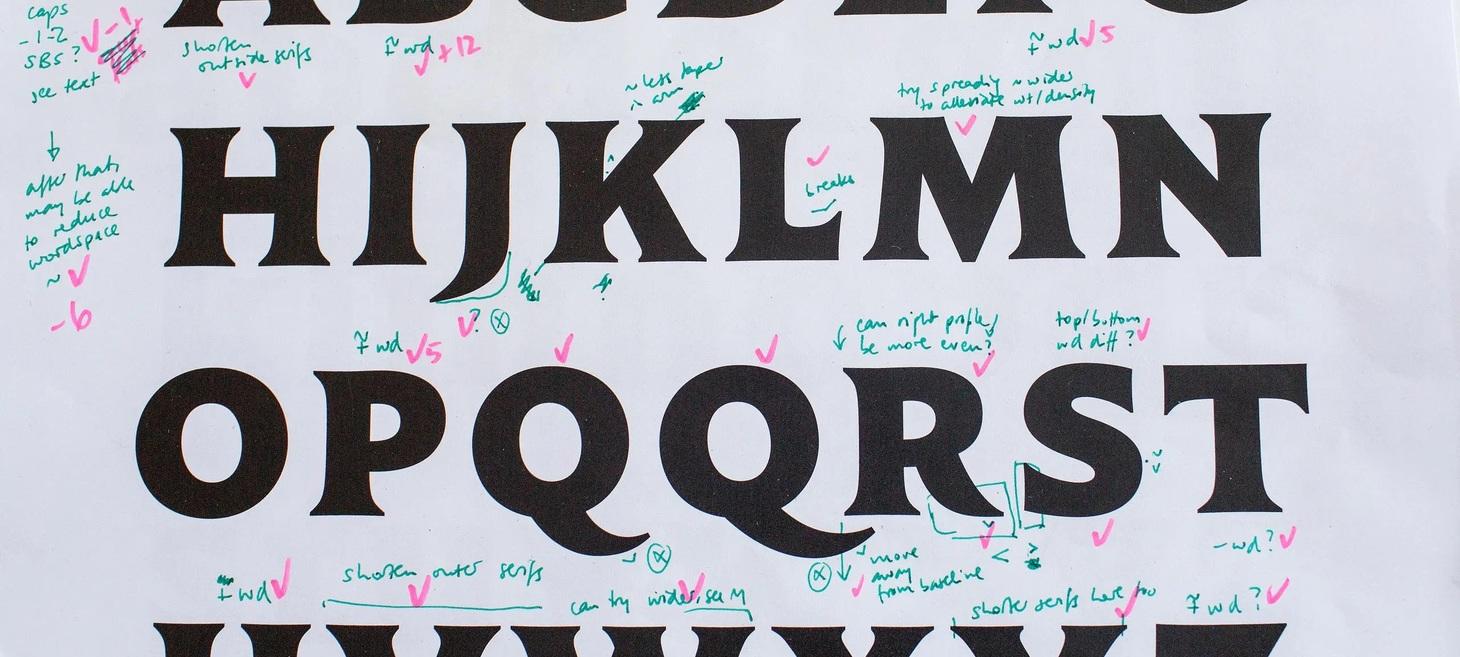 caps
-1-2
SBS?
see text
-1
A B C D E F G
shorten
outside serifs
wd +12
wd 5
~ less taper
in arm
try spreading ~ wider
to alleviate wt/density
HIJKLMN
breaks
after that,
may be able
to reduce
wordspace
~
-6
?
wd 5
can right profile
be more even?
top/bottom
wd diff?
OPQQRST
move
away
from baseline
< >
-wd?
wd
shorten outer serifs
can try wider, see M
shorter serifs here too
wd?